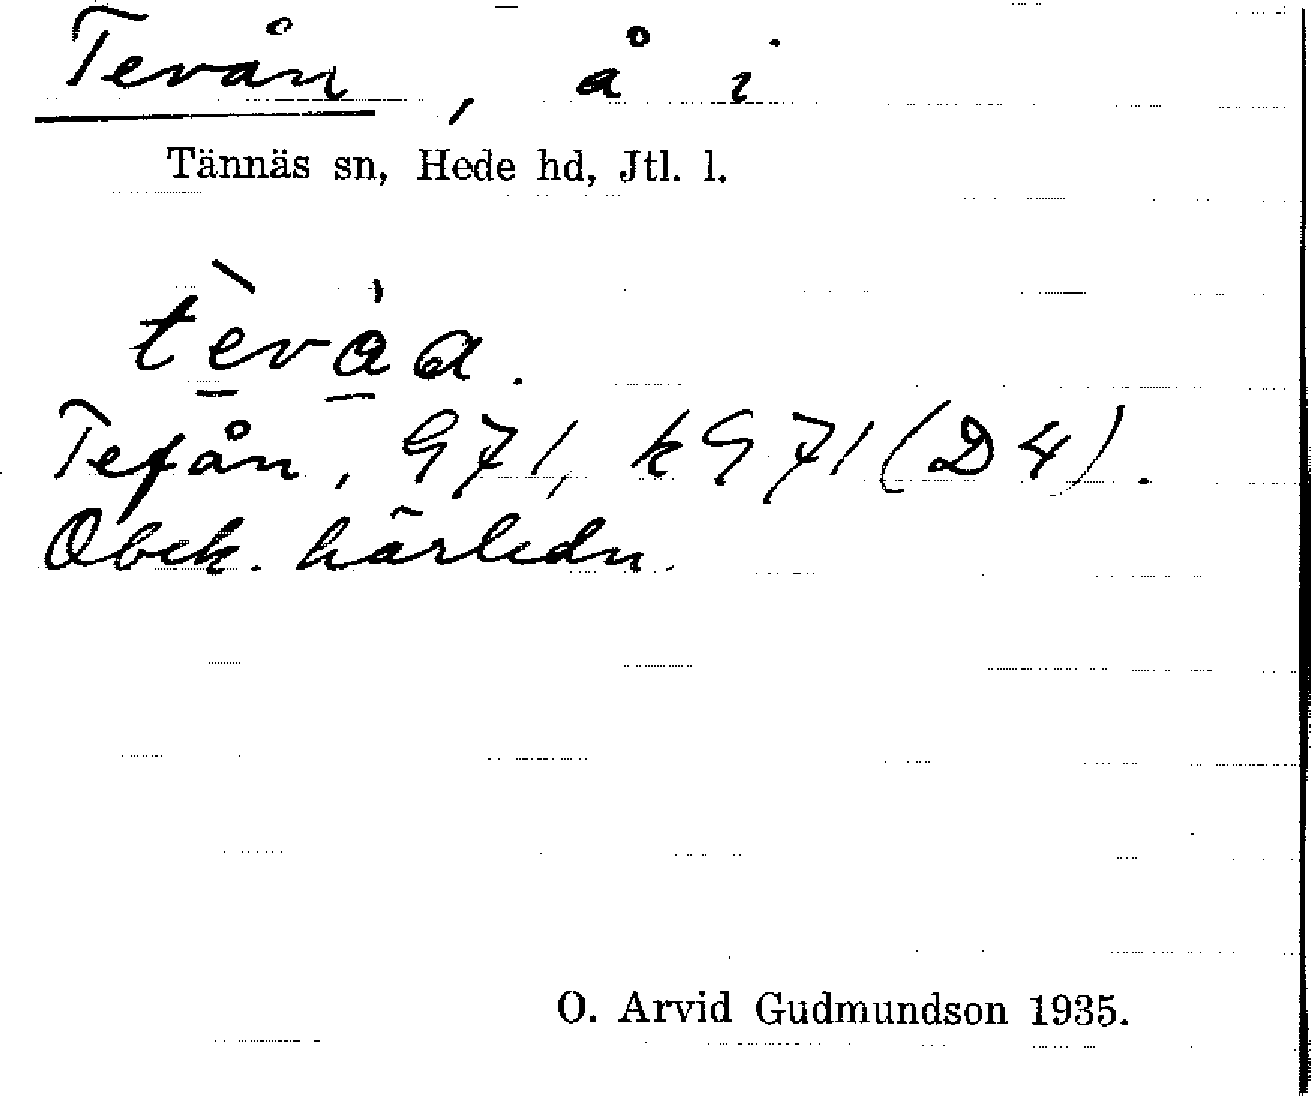 Tevån, å i
Tännäs sn, Hede hd, Jtl. l.
tèvȧa.
Tefån, G71, kG71(D4).
Obek. härledn.
O. Arvid Gudmundson 1935.